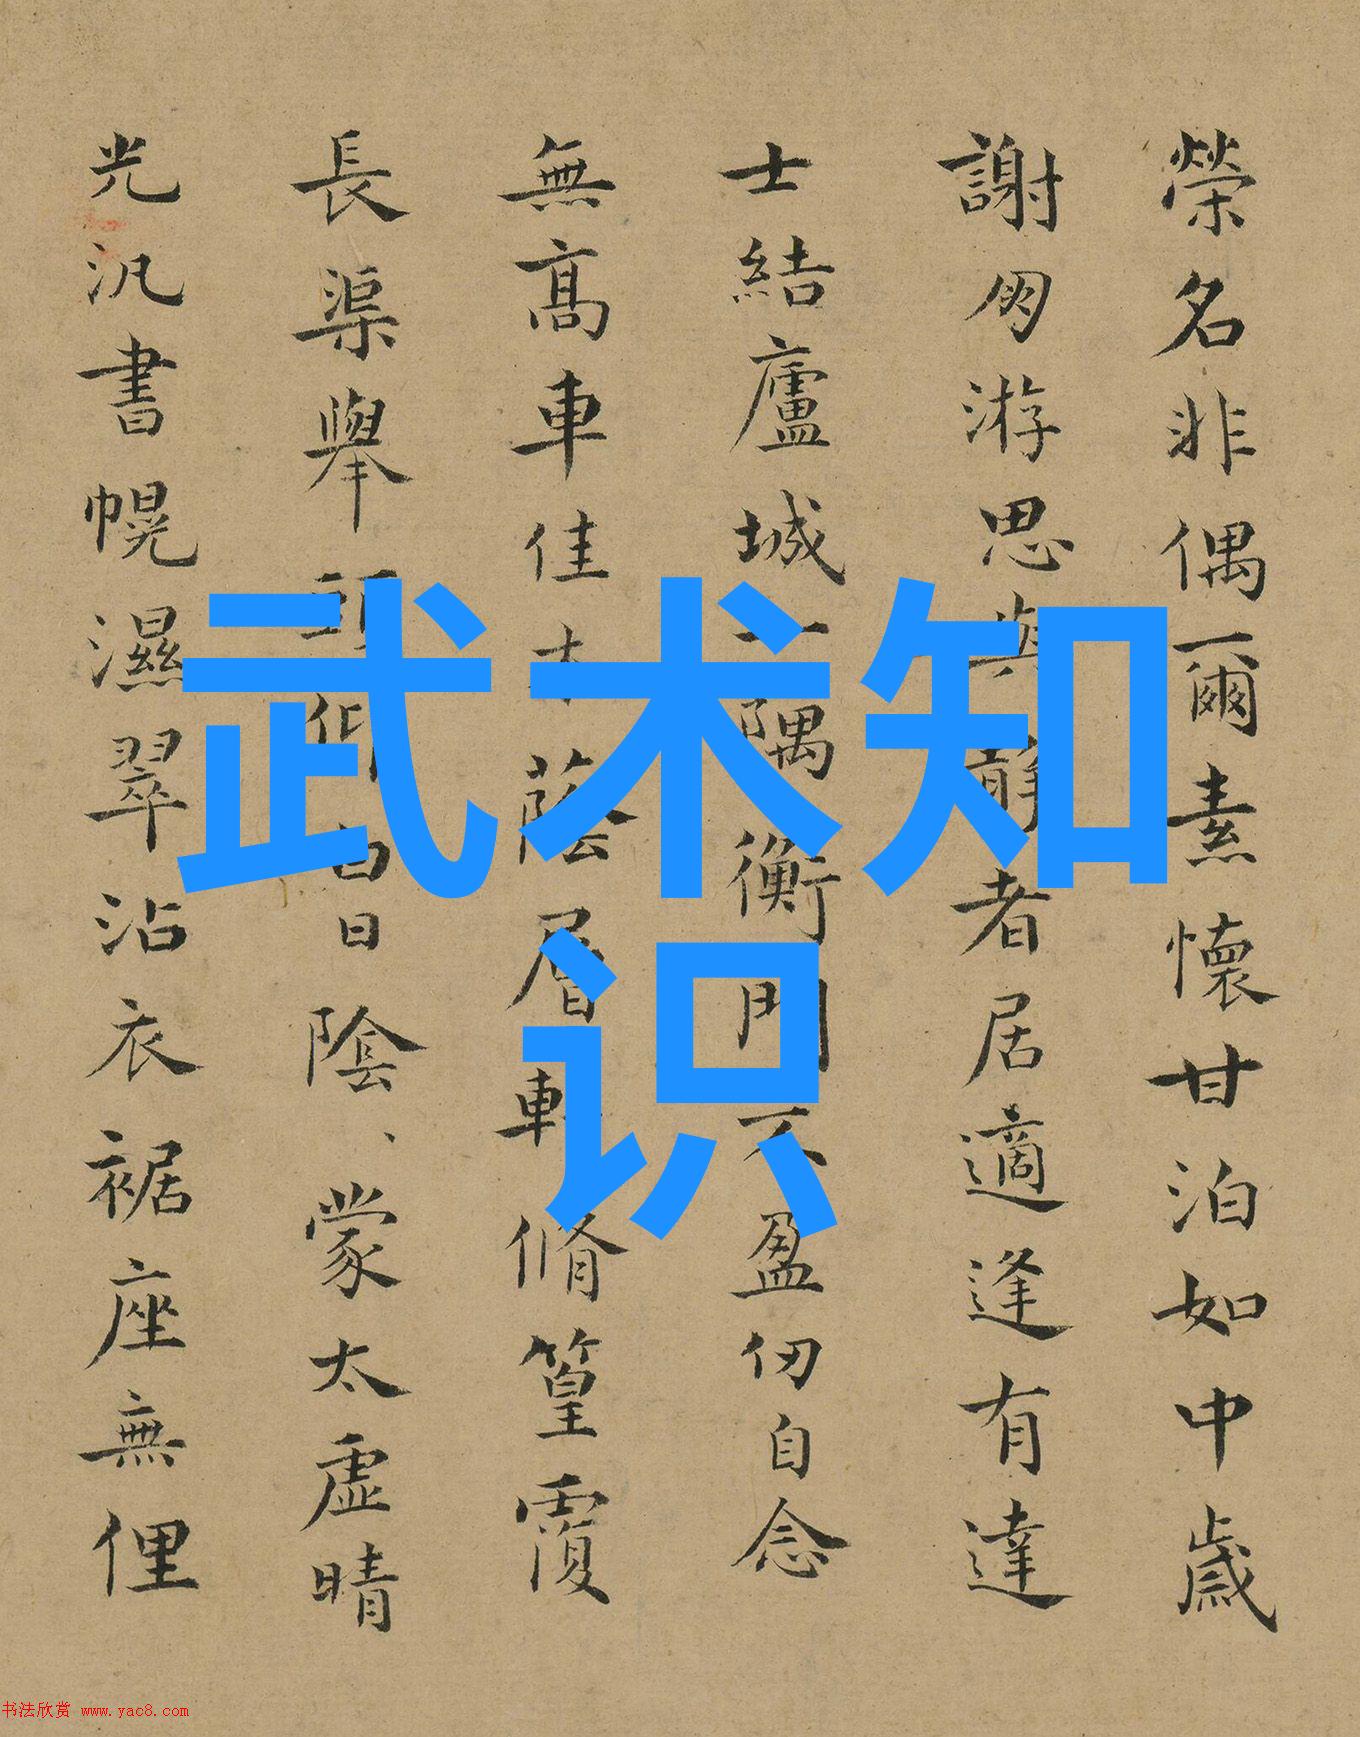 榮名非偶爾素懷甘泊如中歲
謝朋游思與靜者居適逢有達
士結廬城一隅衡門不盈仞自念
無髙車佳木蔭層軒脩篁覆
長渠舉頭仰白日陰、蒙太虛晴
光汎書幌濕翠沾衣裾座無俚
武术知
识
书法欣赏 www.yac8.com